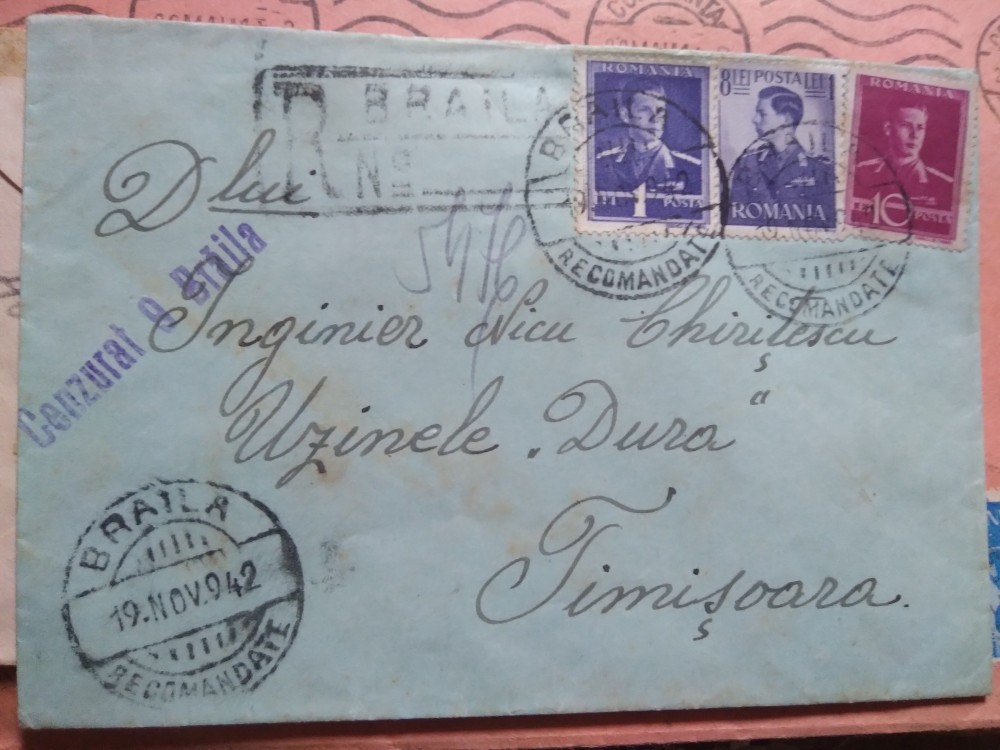 R BRAILA
Nº
ROMANIA
LEI 1 POSTA
8 LEI POSTA LEI
ROMANIA
ROMANIA
LEI 10 POSTA
BRAILA
RECOMANDATE
RECOMANDATE
Dlui
Inginier Nicu Chirițescu
Uzinele „Dura"
Timișoara.
Cenzurat 9 Brăila
BRAILA
19.NOV.942
RECOMANDATE